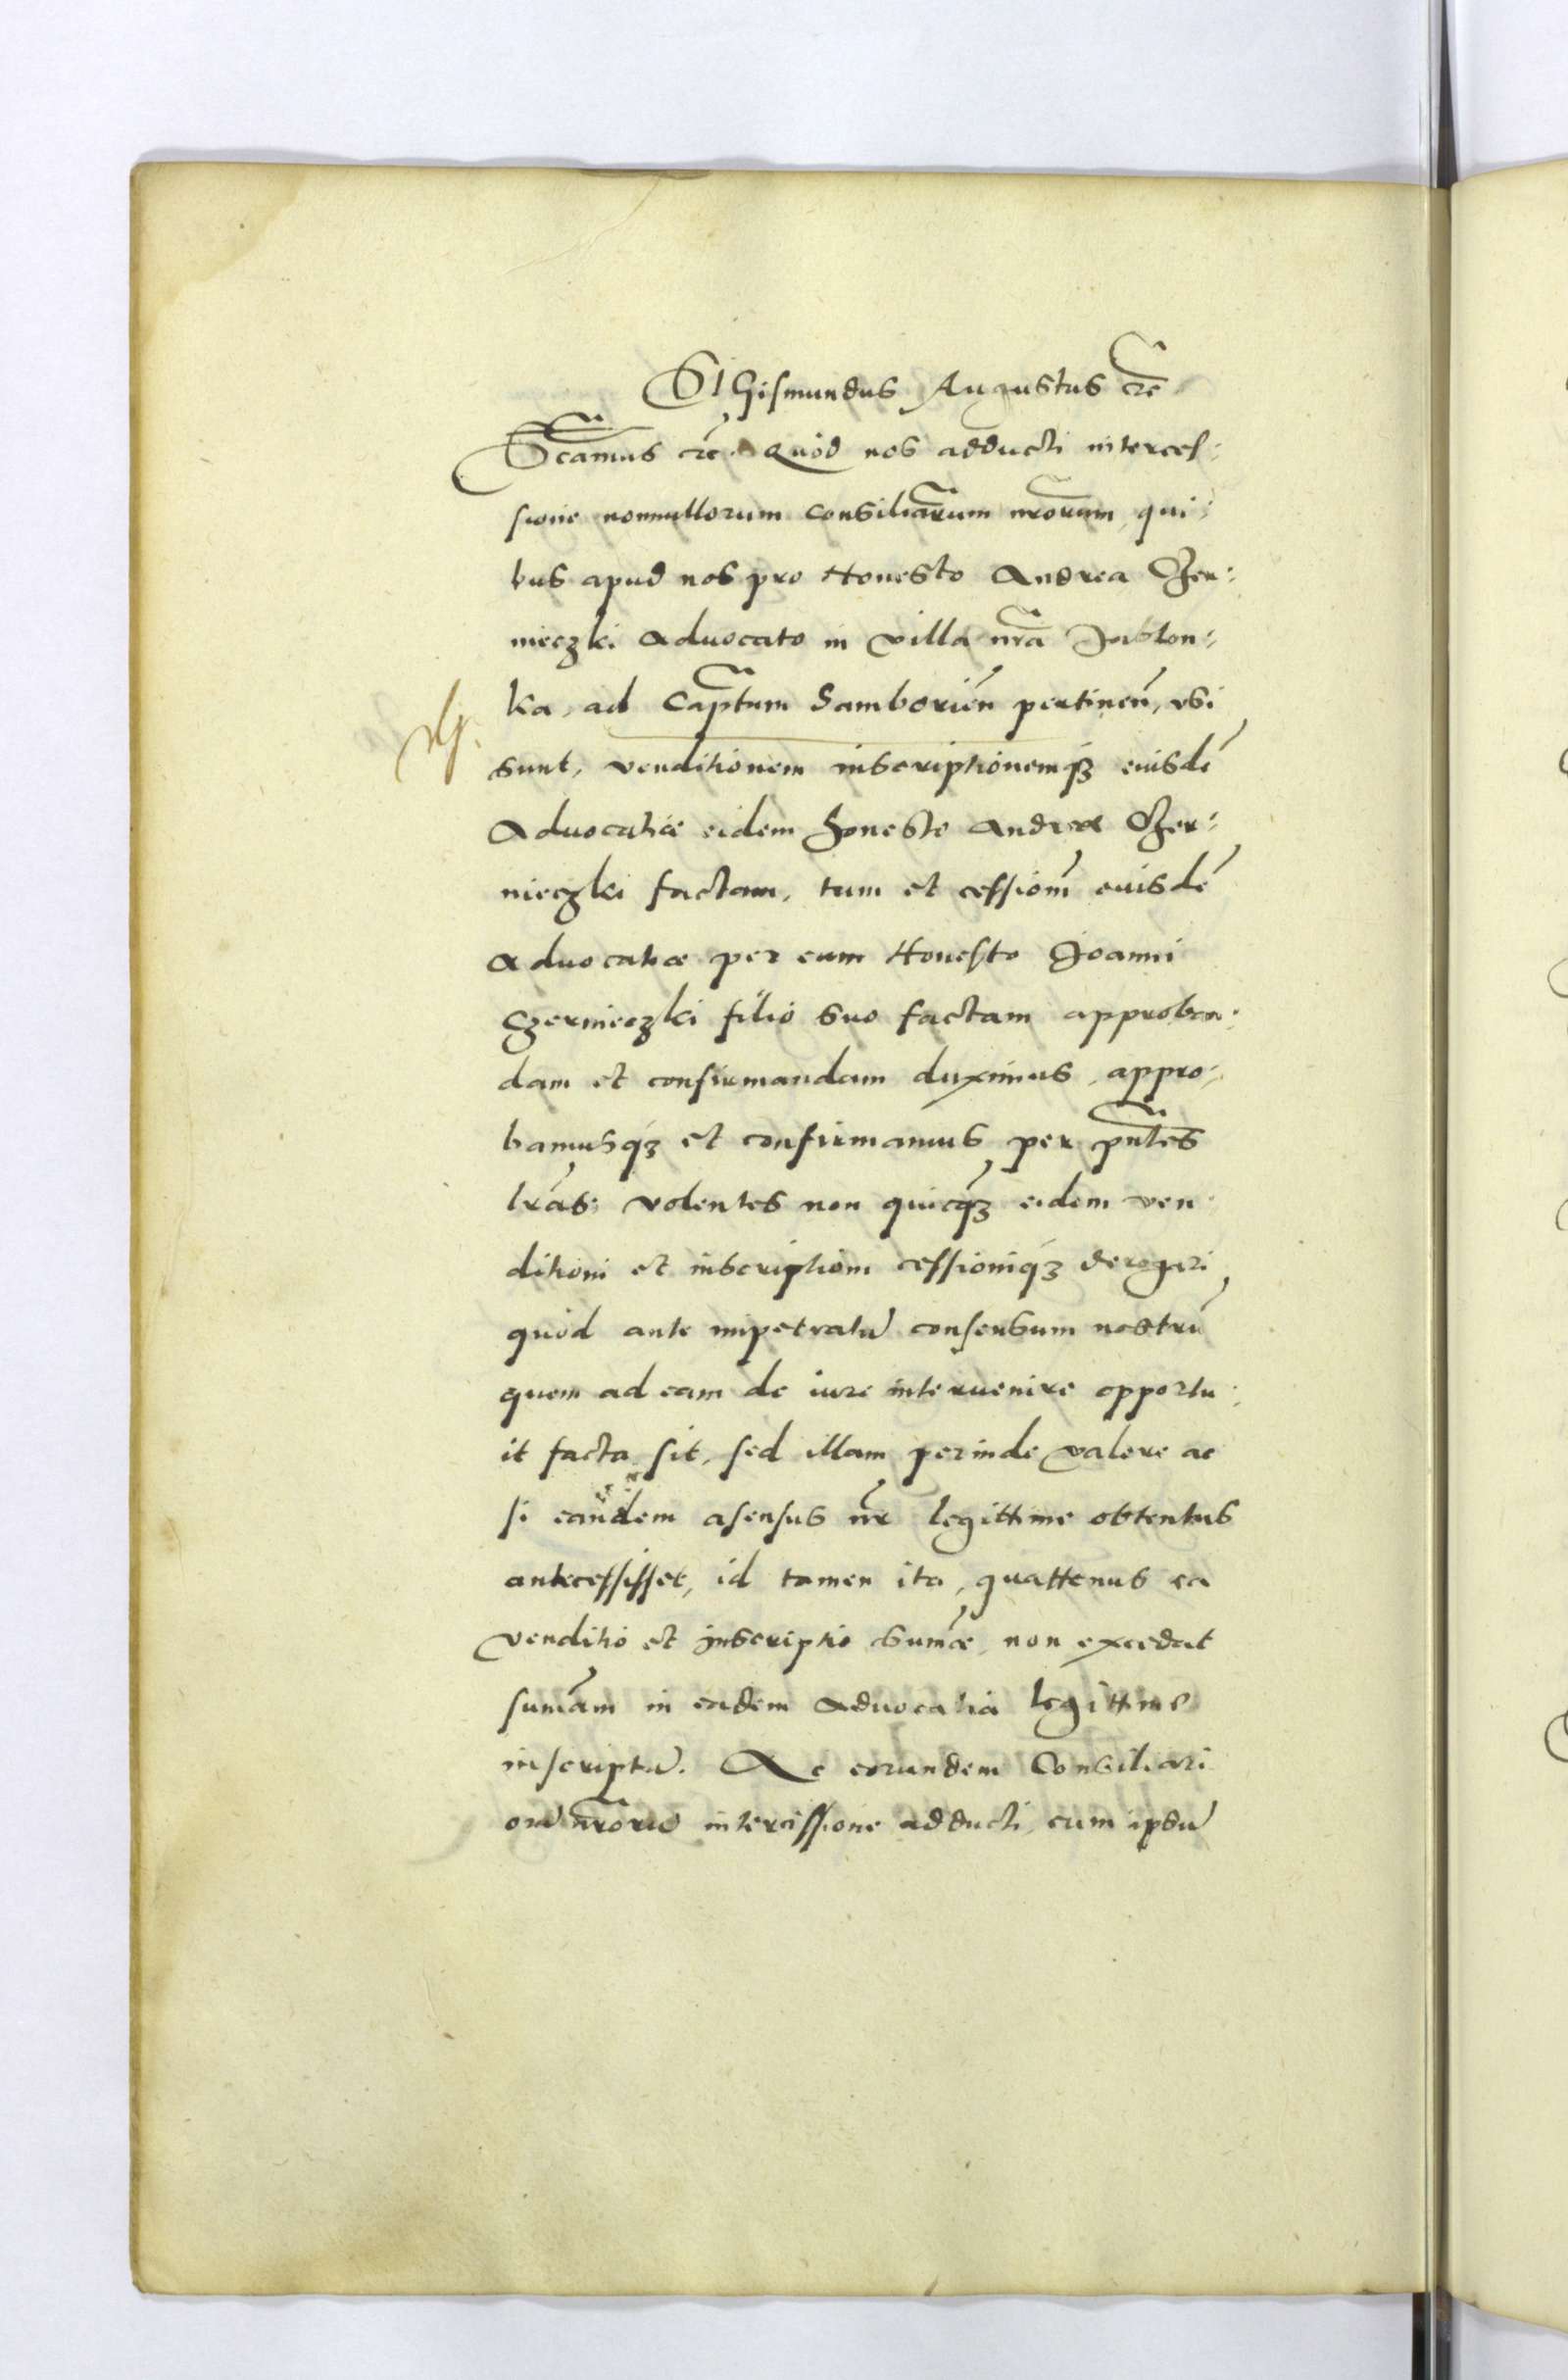 SIGismundus Augustus etc̃
Scamus etc̃. Quod nos adducti interces:
sione nonnullorum consiliar̃um nr̃orum, qui:
bus apud nos pro Honesto Andrea Czer:
nieczki Advocato in villa nr̃a Jablon:
ka, ad Cap̃tum Samborien̄ pertinen̄, vsi
sunt, venditionem inscriptionemqꝫ euisdē
Advocatiæ eidem Honesto Andreæ Czer:
nieczki factam, tum et cessionē euisdē
Advocatiæ per eum Honesto Joanni
Czernieczki filio suo factam approban:
dam et confirmandam duximus, appro:
bamusqꝫ et confirmamus per pn̄tes
lr̃as: volentes non quicqꝫ eidem ven:
ditioni et inscriptioni cessioniqꝫ derogari
quòd ante impetratū consensum nostrū
quem ad eam de iure interuenire opportu:
it facta sit, sed illam perinde valere ac
si eandem asensus nr̃ legittime obtentus
antecessisset, id tamen ita, quattenus ea
venditio et inscriptio sum̄æ, non excedat
sum̄am in eadem Advocatia legittime
inscriptā. Ac eorundem Consiliari
orū nr̃orū intercessione adducti, cum ipsū